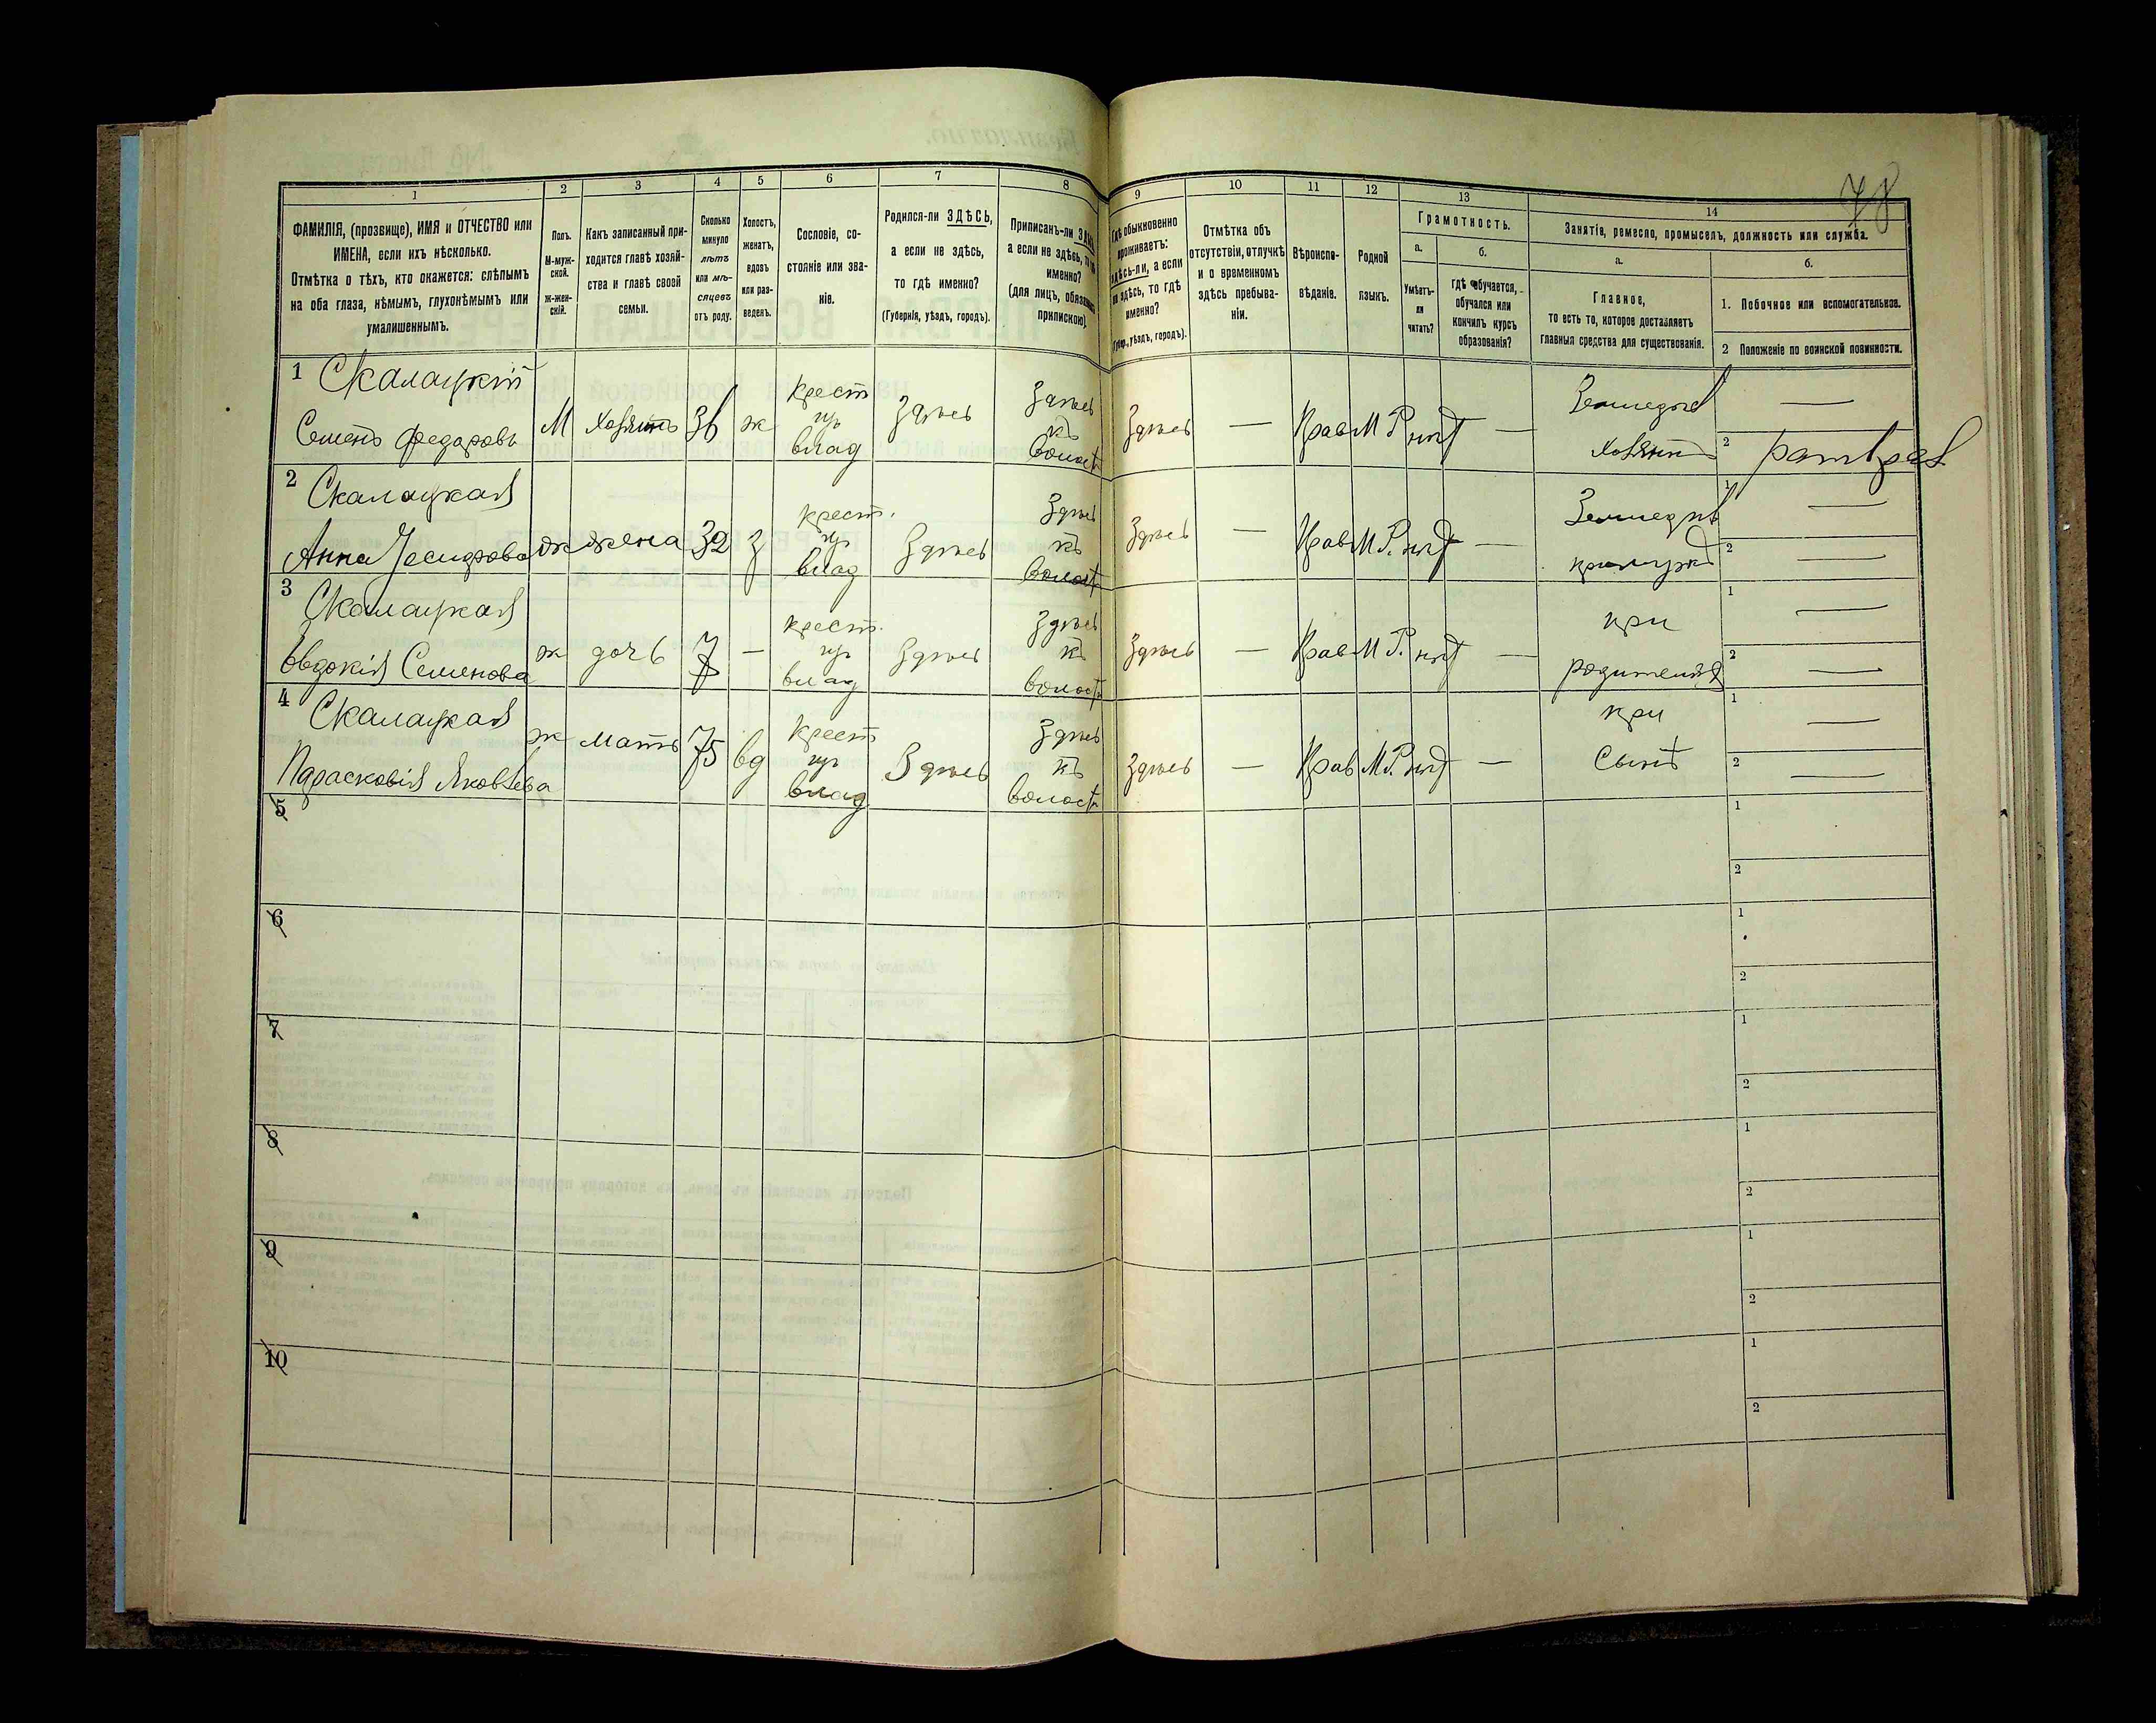 78
1 2 3 4 5 6 7 8 9 10 11 12 13 14
ФАМИЛІЯ, (прозвище), ИМЯ и ОТЧЕСТВО или
ИМЕНА, если ихъ нѣсколько.
Отмѣтка о тѣхъ, кто окажется: слѣпымъ
на оба глаза, нѣмымъ, глухонѣмымъ или
умалишеннымъ.
Полъ.
М-муж-
ской.
Ж-жен-
скій.
Какъ записанный при-
ходится главѣ хозяй-
ства и главѣ своей
семьи.
Сколько
минуло
лѣтъ
или мѣ-
сяцевъ
отъ роду.
Холостъ,
женатъ,
вдовъ
или раз-
веденъ.
Сословіе, со-
стояніе или зва-
ніе.
Родился-ли ЗДѢСЬ,
а если не здѣсь,
то гдѣ именно?
(Губернія, уѣздъ, городъ).
Приписанъ-ли
а если не здѣсь,
именно?
(для лицъ,
припискою)
Гдѣ обыкновенно
проживаетъ:
здѣсь-ли, а если
не здѣсь, то гдѣ
именно?
уѣздъ, городъ).
Отмѣтка объ
отсутствіи, отлучкѣ
и о временномъ
здѣсь пребыва-
ніи.
Вѣроиспо-
вѣданіе.
Родной
языкъ.
Грамотность.
а.
Умѣетъ-
ли
читать?
б.
гдѣ обучается,
обучался или
кончилъ курсъ
образованія?
Занятіе, ремесло, промыселъ, должность или служба.
а.
Главное,
то есть то, которое доставляетъ
главныя средства для существованія.
б.
1. Побочное или вспомогательное.
2 Положеніе по воинской повинности.
1 Скалацкій
Семенъ Федоровъ
М Хозяинъ 36 ж
Крест
изъ
влад
Здѣсь
Здѣсь
къ
волост
Здѣсь — Прав М.Р. нѣт —
Хозяинъ
—
2
2 Скалацкая
Анна
ж жена 32 з
крест.
изъ
влад
Здѣсь
Здѣсь
къ
волост
Здѣсь — Прав М.Р. нѣт —
1 —
2 —
3 Скалацкая
Овдокія Семенова
ж дочь 7 —
крест.
изъ
влад
Здѣсь
Здѣсь
къ
волост
Здѣсь — Прав М.Р. нѣт —
при
1 —
2 —
4 Скалацкая
Парасковія Яковлева
ж мать 75 вд
Крест
изъ
влад
Здѣсь
Здѣсь
къ
волост
Здѣсь — Прав М.Р. нѣт —
при
сынѣ
1 —
2 —
5
1
2
6
1
2
7
1
2
8
1
2
9
1
2
10
1
2